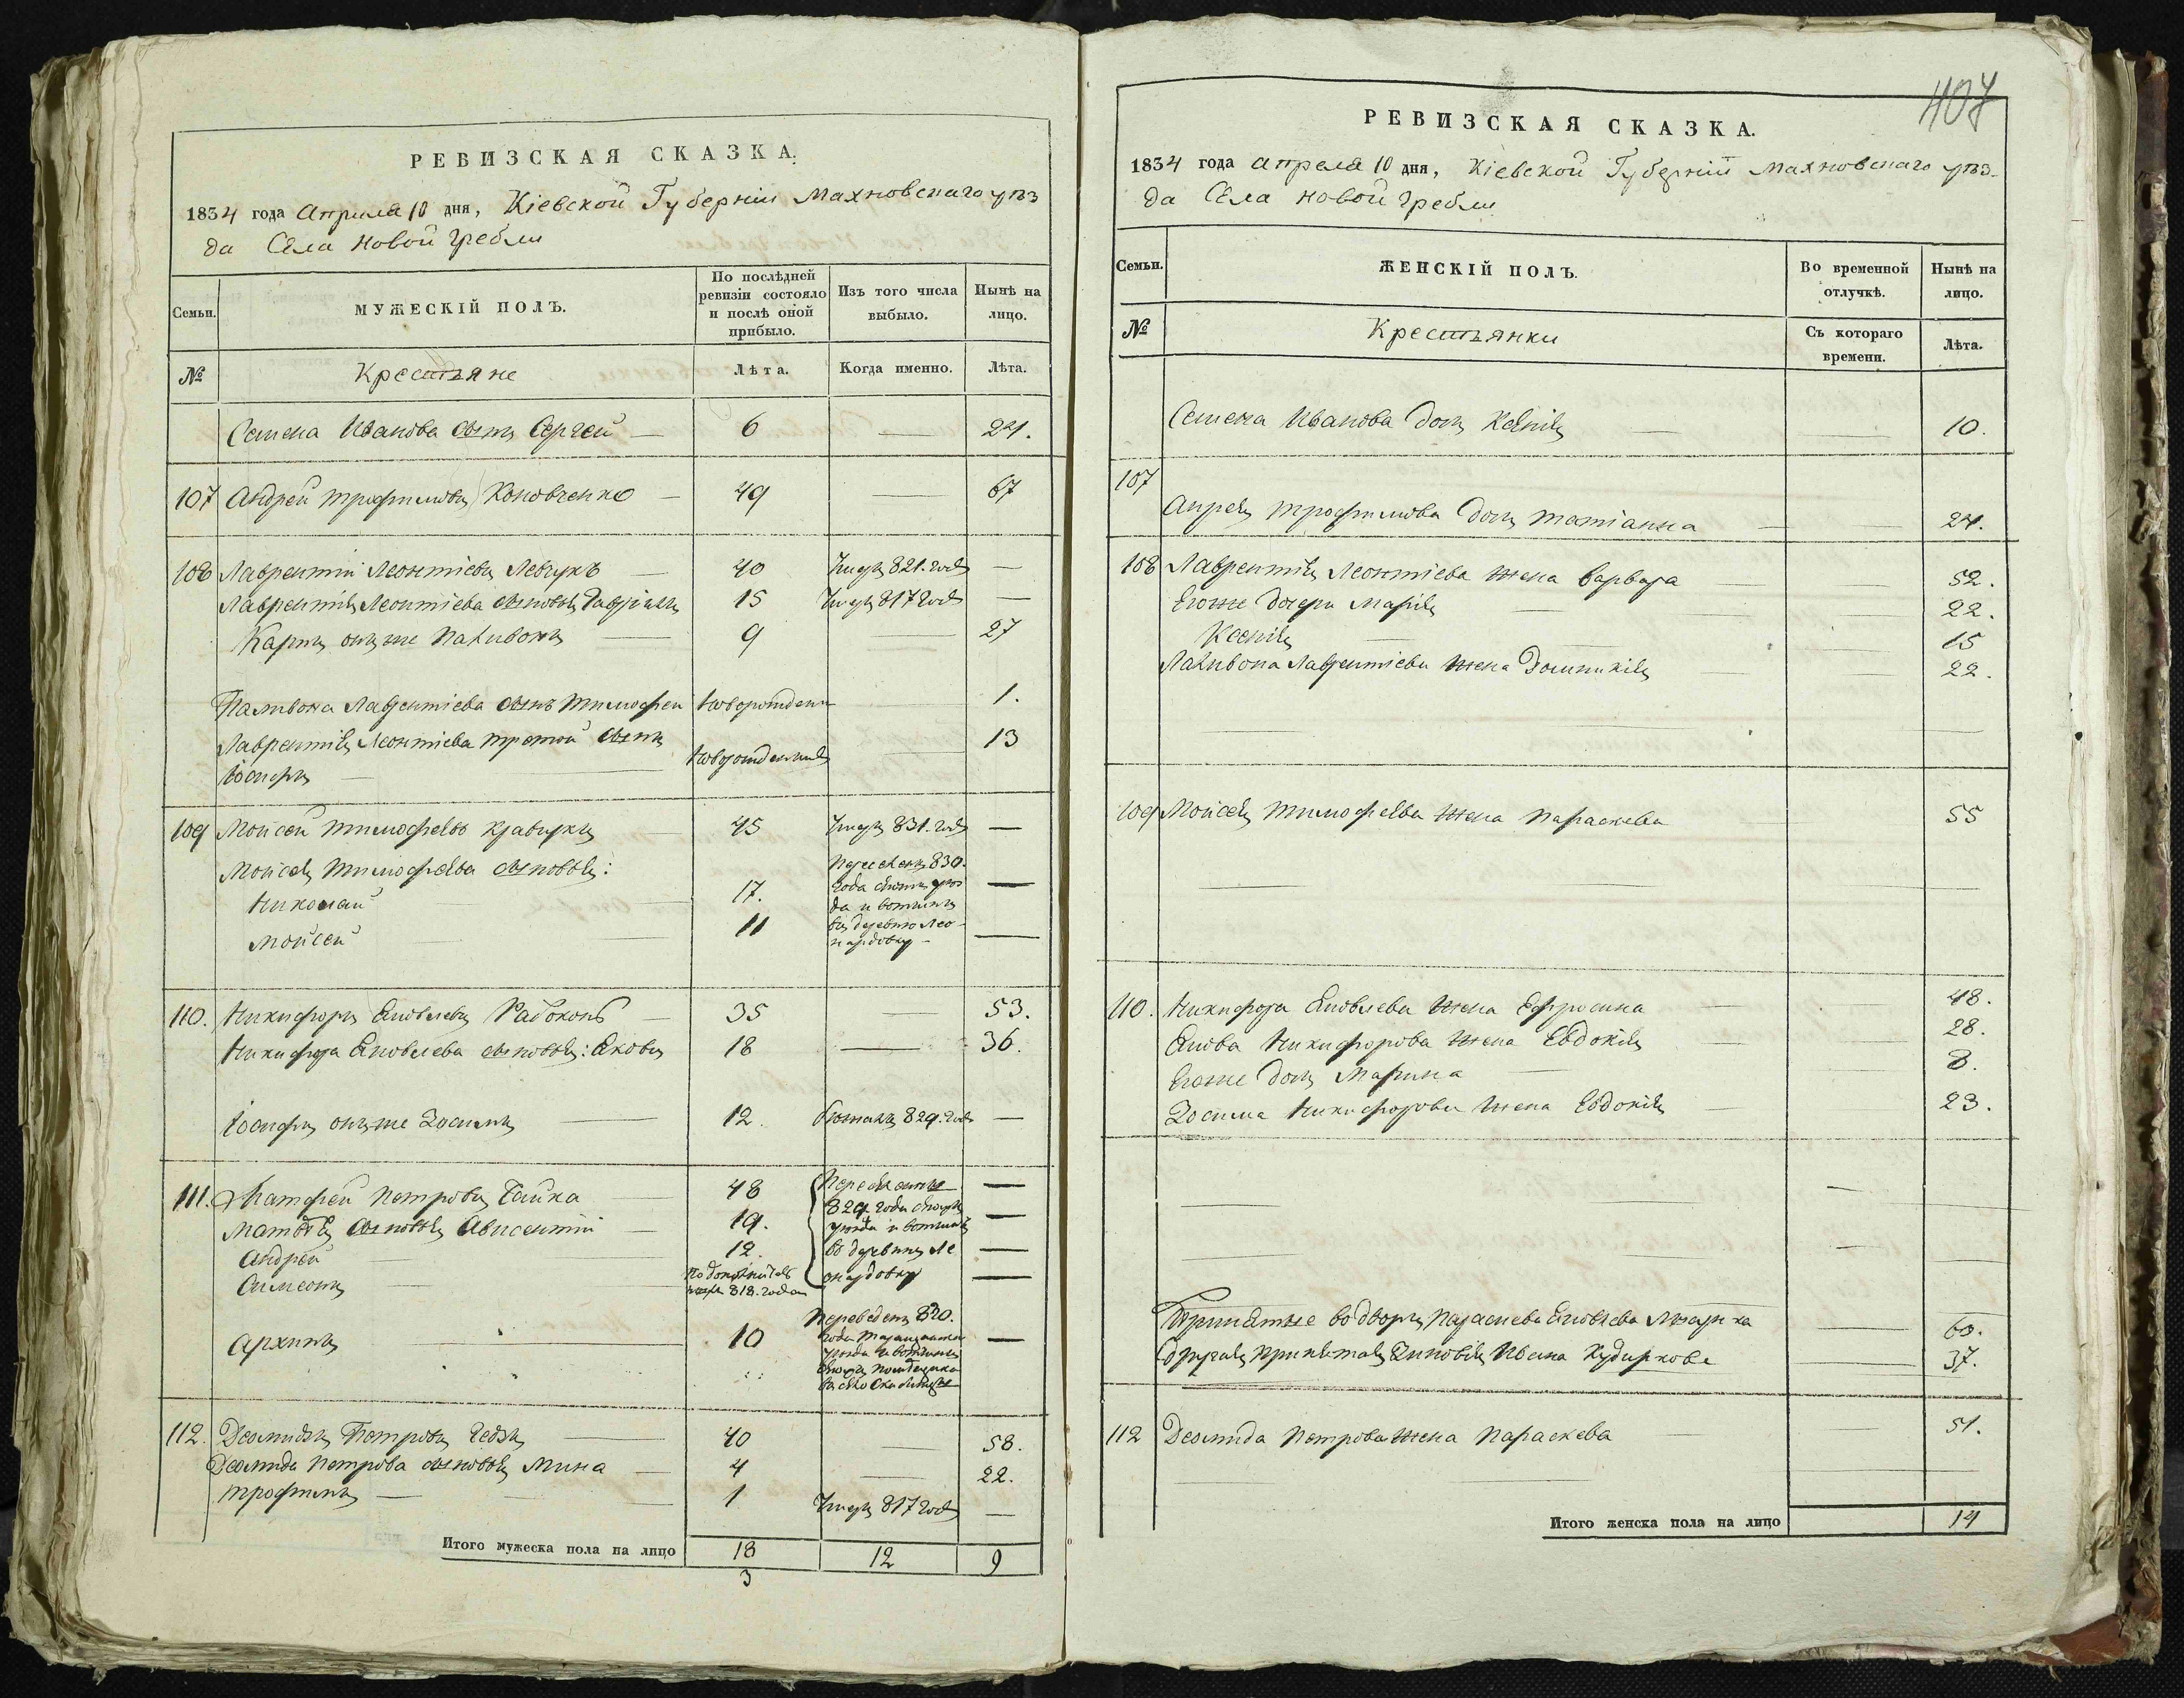 РЕВИЗСКАЯ СКАЗКА.
1834 года Апреля 10 дня, Кіевской Губерніи Махновскаго уѣз
да Села Новой Гребли
Семьи. МУЖЕСКІЙ ПОЛЪ. По послѣдней ревизіи состояло и послѣ оной прибыло. Изъ того числа выбыло. Нынѣ на лицо.
№ Крестьяне Лѣта. Когда именно. Лѣта.
Семена Иванова сынъ Сергей — 6 — 24.
107 Андрей Трофимовъ Коновченко — 49 — 67
108 Лаврентій Леонтіевъ Левчукъ — 40 Умеръ 821. года —
Лаврентія Леонтіева сыновья Гавріилъ 15 Умеръ 817 года —
Карпъ онъ же Паливонъ — 9 — 27
Паливона Лаврентіева сынъ Тимофей новорожденъ — 1.
Лаврентія Леонтіева третій сынъ
Іосифъ — новорожденный — 13
109 Мойсей Тимофеевъ Кравчукъ 45 Умеръ 831. года —
Мойсея Тимофеева сыновья:
Николай 17. —
Мойсей 11 —
въ деревню Лео
нардовку
110. Никифоръ Яковлевъ Рабоконь — 35 — 53.
Никифора Яковлева сыновья: Яковъ 18 — 36.
Іосифъ онъ же Зосимъ — 12. Бежалъ 829. года —
111. Матфей Петровъ Гайка — 48 —
Матвѣя сыновья Авксентій — 19. —
Андрей — 12. —
Симеонъ — 818. года —
829 года
уезда и вотчины
въ деревню Ле
онардовку
Архипъ — 10 —
Переведенъ 830.
года
уезда и вотчины
въ село
112. Демидъ Петровъ — 40 58.
Демида Петрова сыновья Мина — 4 — 22.
Трофимъ — 1 Умеръ 817 года —
Итого мужеска пола на лицо 18 12 9
3
407
РЕВИЗСКАЯ СКАЗКА.
1834 года Апреля 10 дня, Кіевской Губерніи Махновскаго уѣз-
да Села Новой Гребли
Семьи. ЖЕНСКІЙ ПОЛЪ. Во временной отлучкѣ. Нынѣ на лицо.
№ Крестьянки Съ котораго времени. Лѣта.
Семена Иванова дочь Ксенія — — 10.
107
Андрея Трофимова дочь Татіанна — — 24.
108 Лаврентія Леонтіева жена Варвара — 52.
Его же дочери Марія — — 22.
Ксенія — — 15
Паливона Лаврентіева жена Домникія — — 22.
109 Мойсея Тимофеева жена Параскева 55
110. Никифора Яковлева жена Ефросина — — 48.
Якова Никифорова жена Евдокія — — 28.
Его же дочь Марина — — 8.
Зосима Никифорова жена Евдокія — — 23.
Принятые во дворъ Параскева Яковлева — 60.
Другая принятая Зиновія Ивана — 37.
112 Демида Петрова жена Параскева 51.
Итого женска пола на лицо 14